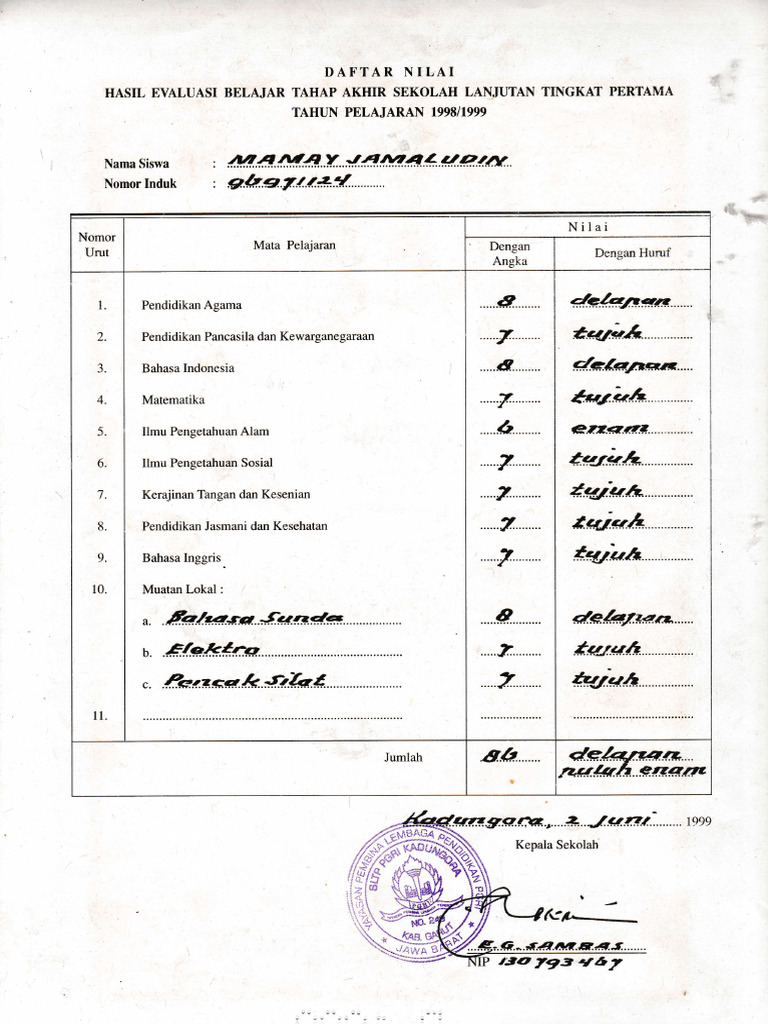 DAFTAR NILAI
HASIL EVALUASI BELAJAR TAHAP AKHIR SEKOLAH LANJUTAN TINGKAT PERTAMA
TAHUN PELAJARAN 1998/1999
Nama Siswa : MAMAY JAMALUDIN
Nomor Induk : 96971124
Nomor Urut Mata Pelajaran Nilai
Dengan Angka Dengan Huruf
1. Pendidikan Agama 8 delapan
2. Pendidikan Pancasila dan Kewarganegaraan 7 tujuh
3. Bahasa Indonesia 8 delapan
4. Matematika 7 tujuh
5. Ilmu Pengetahuan Alam 6 enam
6. Ilmu Pengetahuan Sosial 7 tujuh
7. Kerajinan Tangan dan Kesenian 7 tujuh
8. Pendidikan Jasmani dan Kesehatan 7 tujuh
9. Bahasa Inggris 7 tujuh
10. Muatan Lokal :
a. Bahasa Sunda 8 delapan
b. Elektro 7 tujuh
c. Pencak Silat 7 tujuh
11.
Jumlah 86 delapan
puluh enam
Kadungora, 2 Juni 1999
Kepala Sekolah
YAYASAN PEMBINA LEMBAGA PENDIDIKAN PGRI
SLTP PGRI KADUNGORA
PGRI
NO. 248
KAB. GARUT
JAWA BARAT
E.G. SAMBAS
NIP 130793467